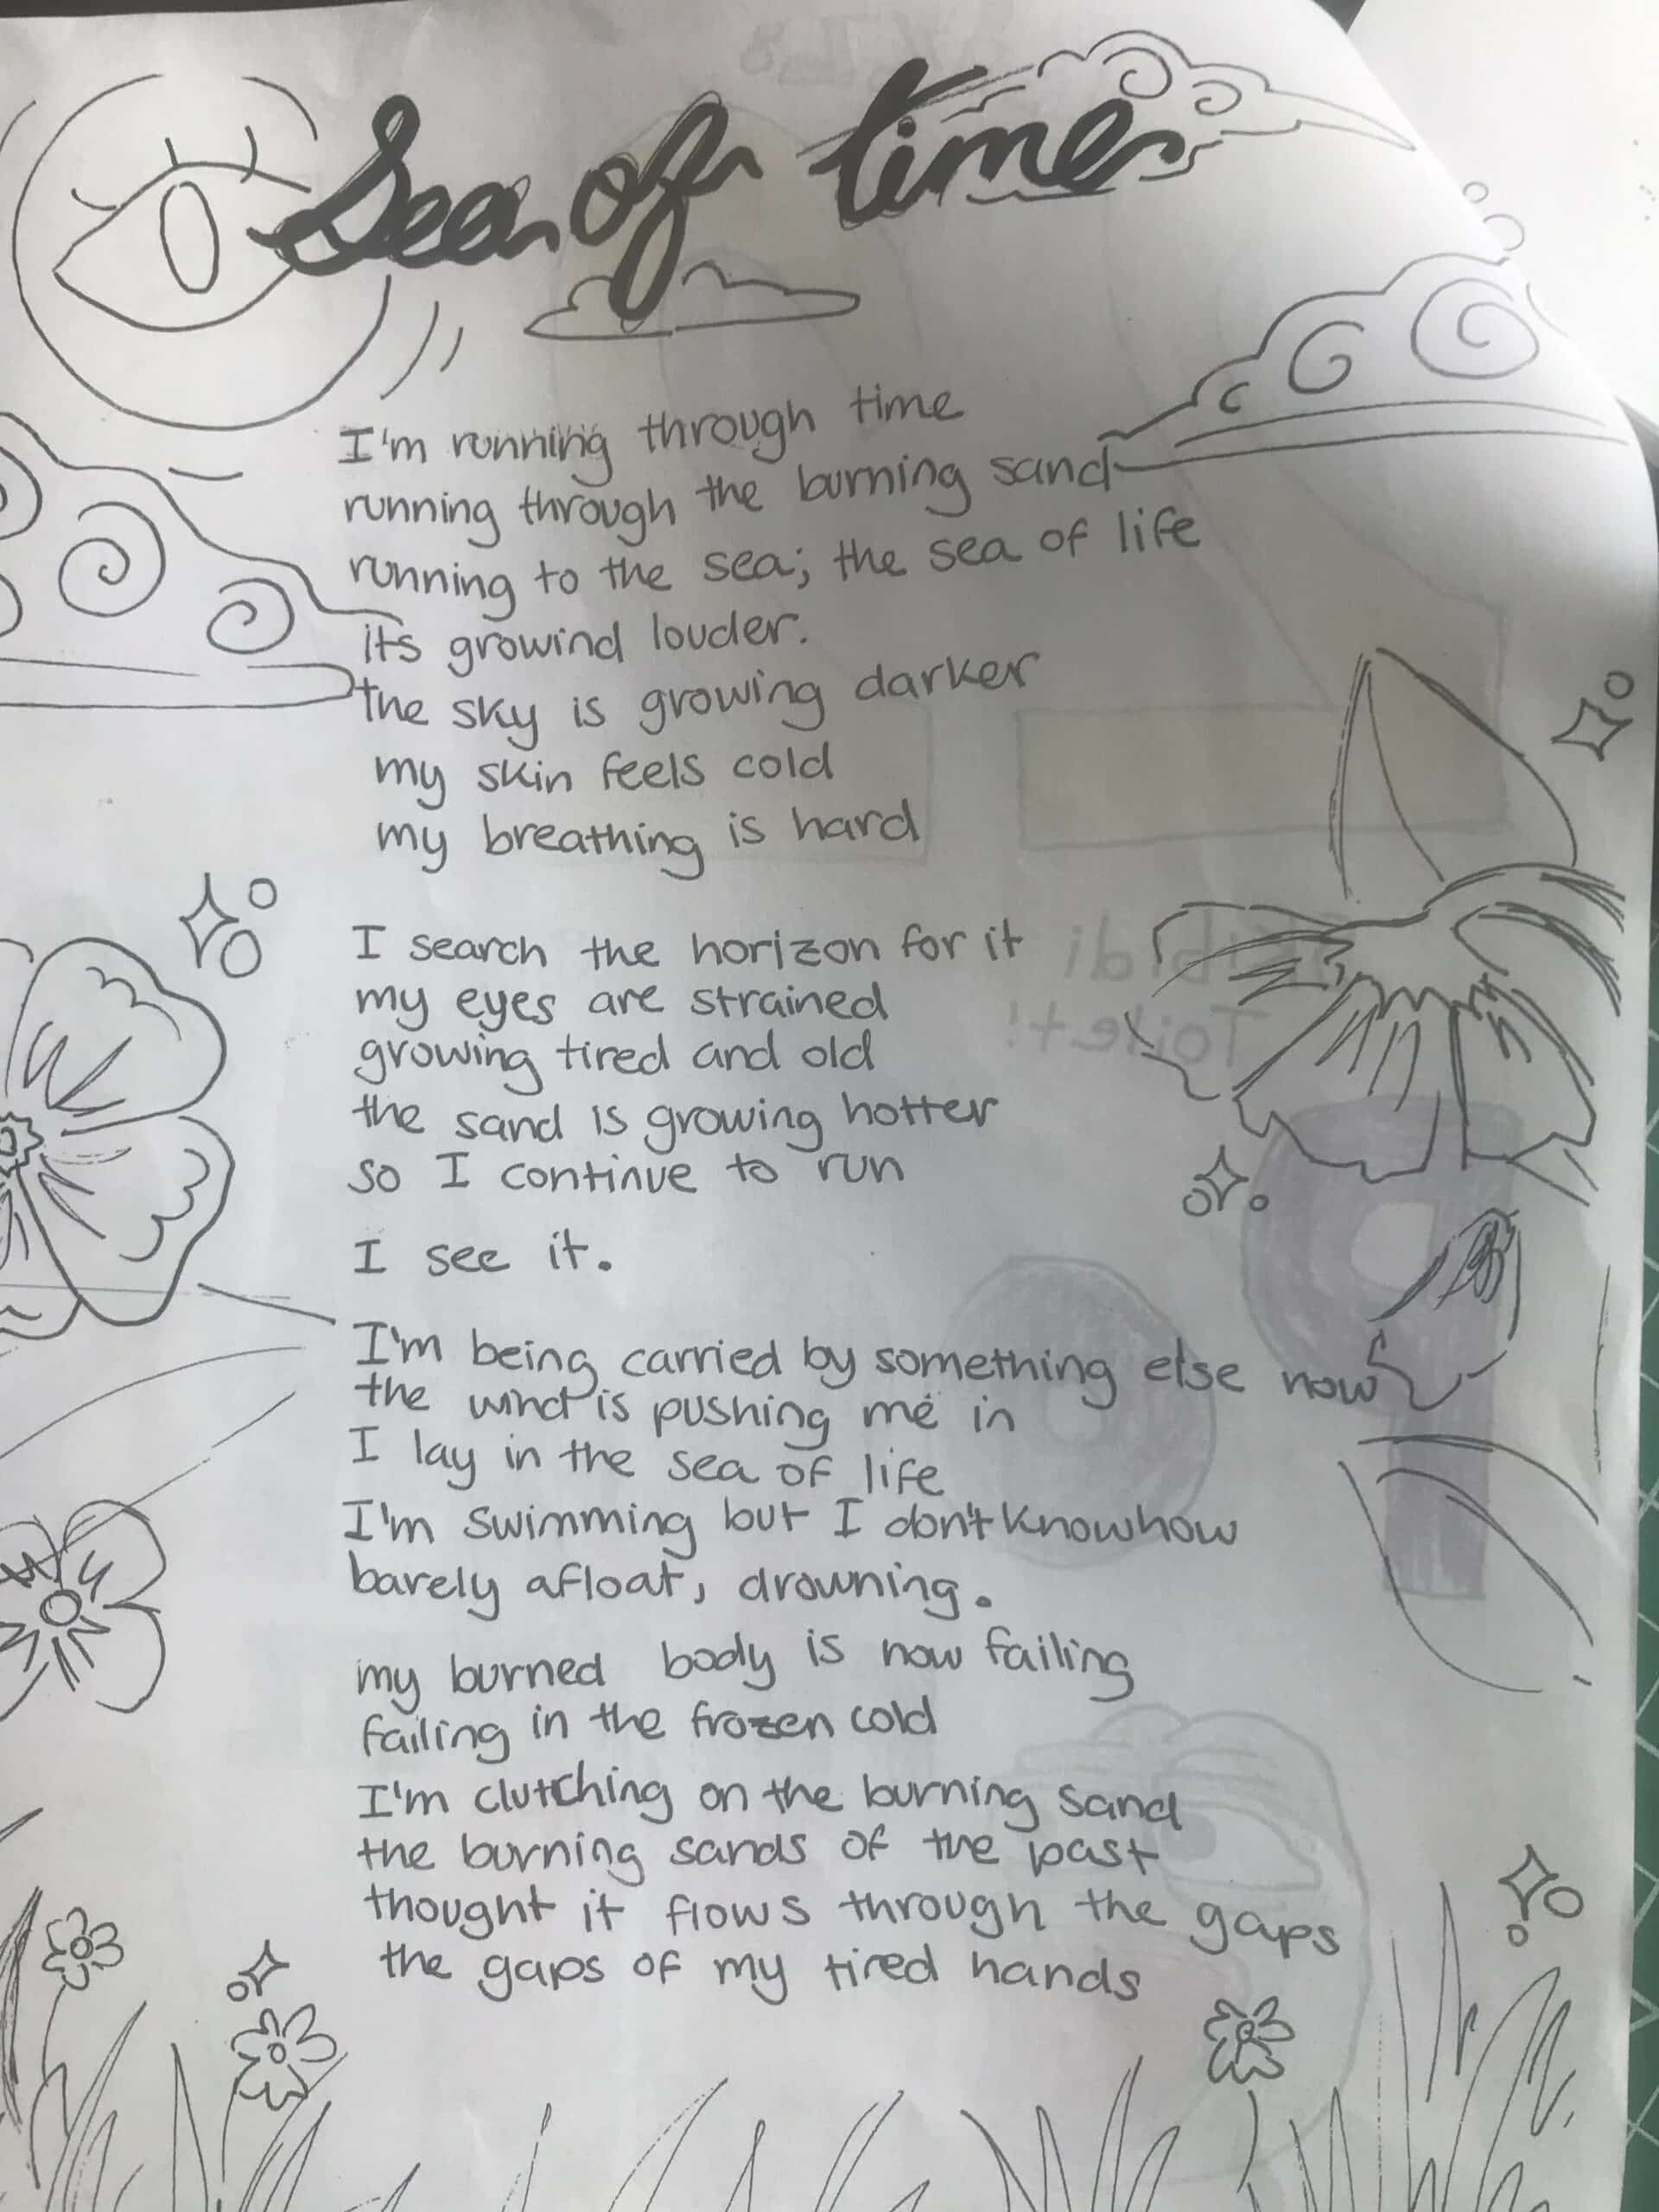 Sea of time
I'm running through time
running through the burning sand
running to the sea; the sea of life
its growind louder.
the sky is growing darker
my skin feels cold
my breathing is hard
I search the horizon for it
my eyes are strained
growing tired and old
the sand is growing hotter
so I continue to run
I see it.
I'm being carried by something else now
the wind is pushing me in
I lay in the sea of life
I'm swimming but I don't know how
barely afloat, drowning.
my burned body is now failing
failing in the frozen cold
I'm clutching on the burning sand
the burning sands of the past
thought it flows through the gaps
the gaps of my tired hands
Toilet!